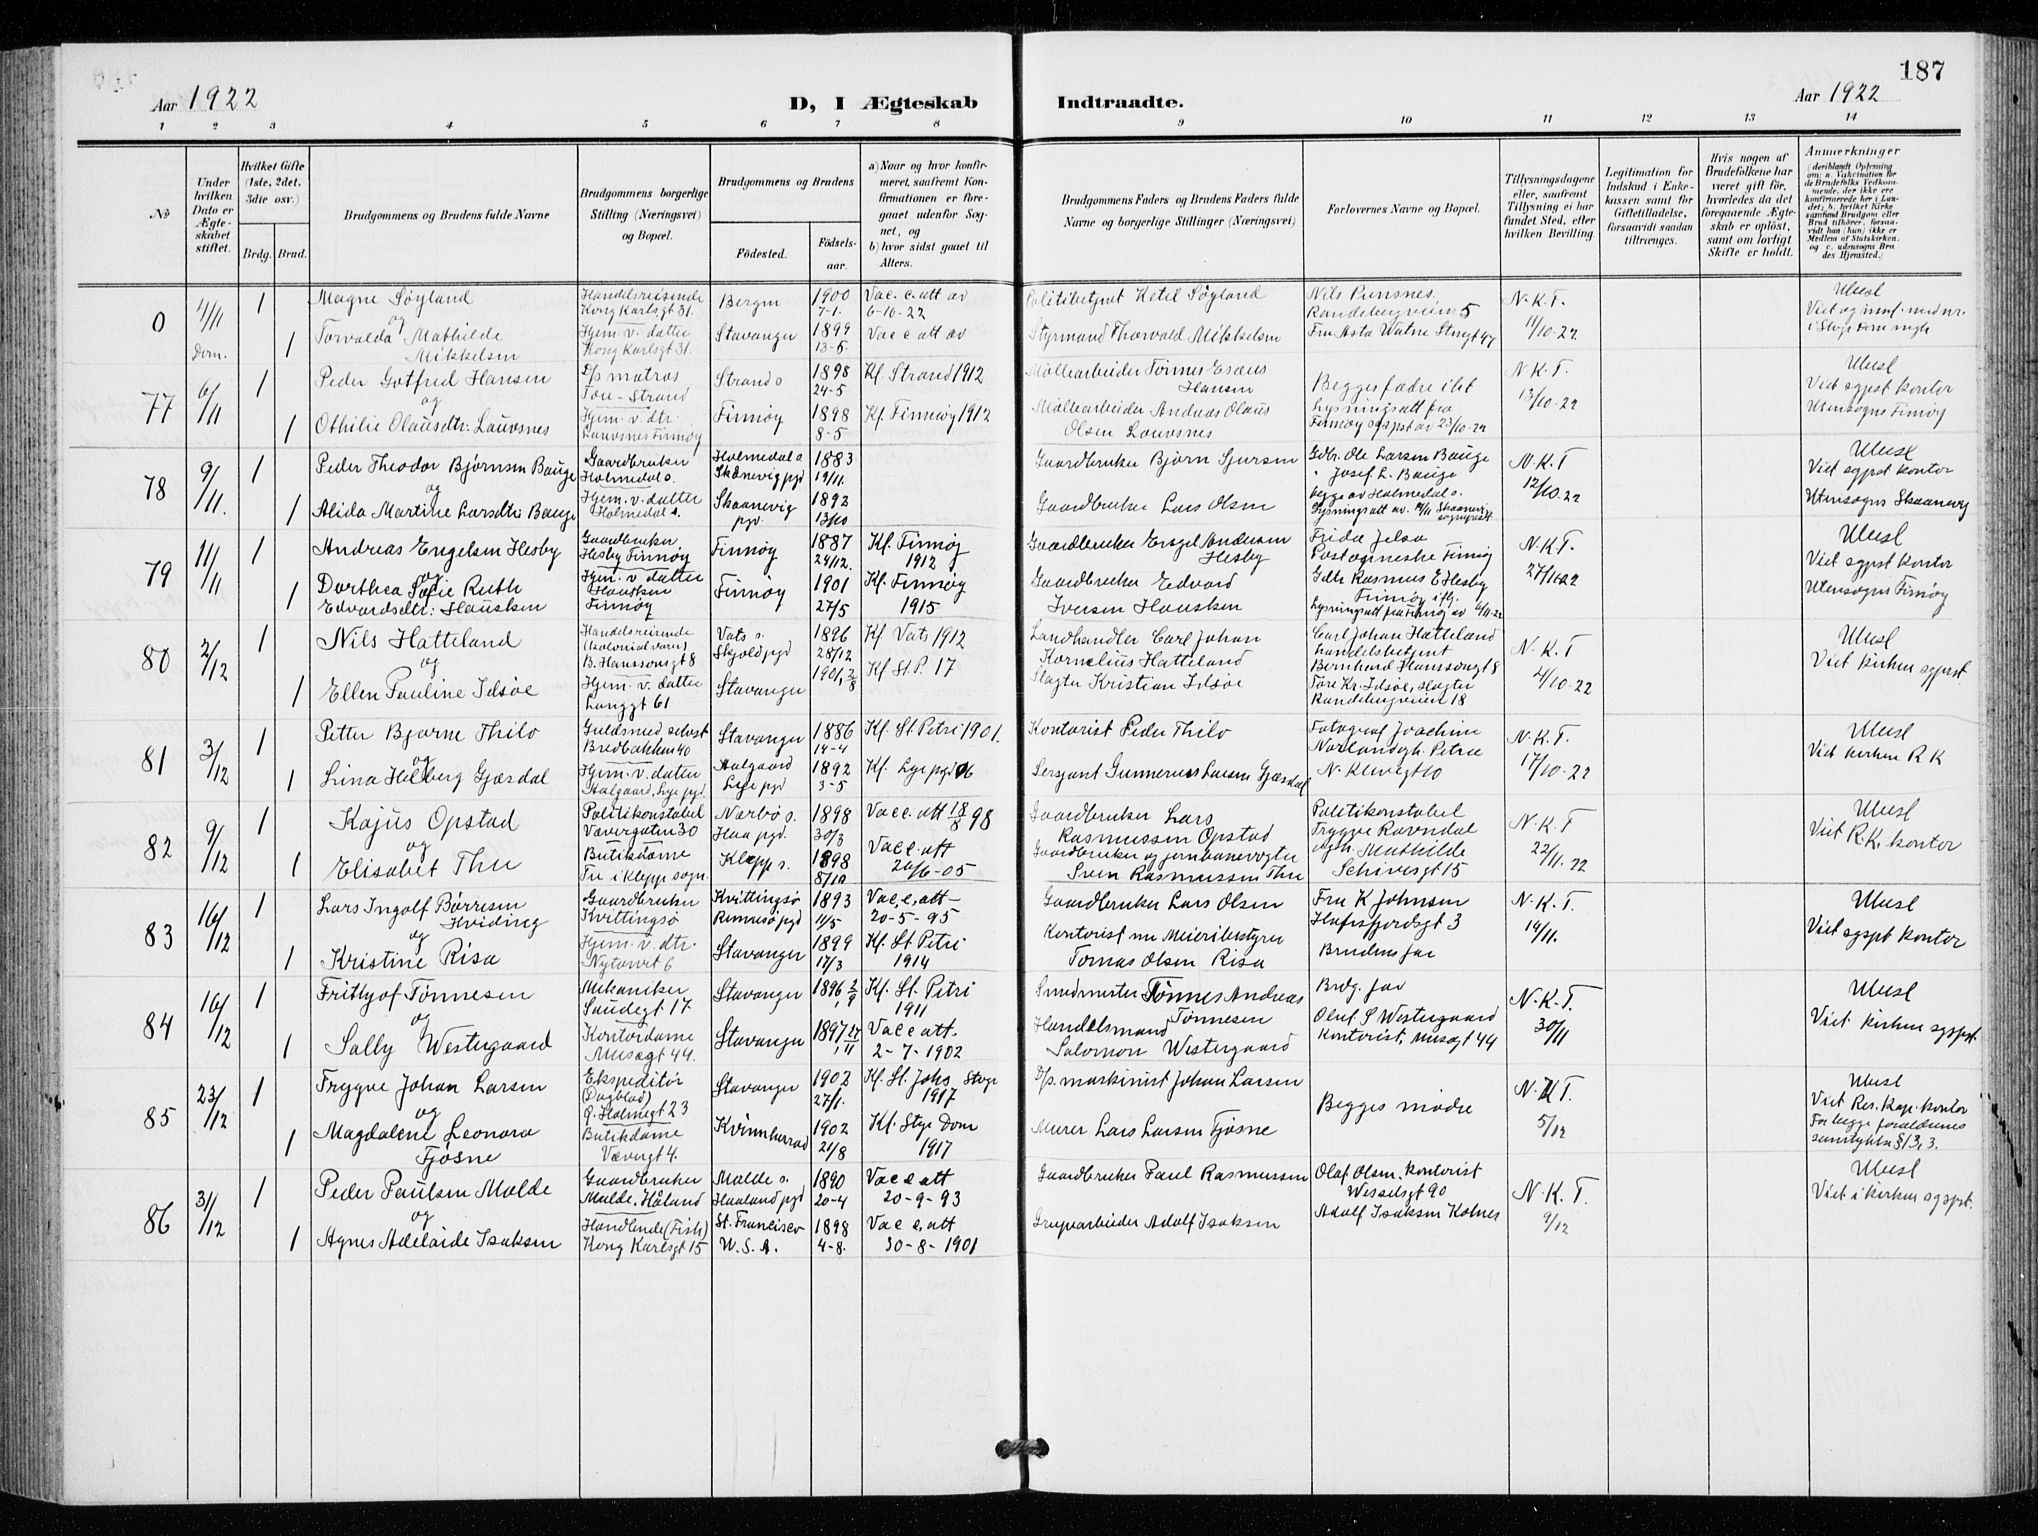 187
Aar 1922
D, I Ægteskab
Indtraadte.
Aar 1922
1 2 3 4 5 6 7 8 9 10 11 12 13 14
No
Under hvilken Dato er Ægteskabet stiftet.
Hvilket Gifte (1ste, 2det, 3die osv.)
Brdg. Brud.
Brudgommens og Brudens fulde Navne
Brudgommens borgerlige Stilling (Næringsvei) og Bopæl.
Brudgommens og Brudens
Fødested.
Fødsels-aar.
a) Naar og hvor konfirmeret, saafremt Konfirmationen er foregaaet udenfor Sognet, og
b) hvor sidst gaaet til Alters.
Brudgommens Faders og Brudens Faders fulde Navne og borgerlige Stillinger (Næringsvei)
Forlovernes Navne og Bopæl.
Tillysningsdagene eller, saafremt Tillysning ei har fundet Sted, efter hvilken Bevilling.
Legitimation for Indskud i Enkekassen samt for Giftetilladelse, forsaavidt saadan tiltrænges.
Hvis nogen af Brudefolkene har været gift før, hvorledes da det foregaaende Ægteskab er opløst, samt om lovligt Skifte er holdt.
Anmerkninger
(deriblandt Oplysning om: a. Vakcination for de Brudefolks Vedkommende, der ikke ere konfirmerede her i Landet; b. hvilket Kirkesamfund Brudgom eller Brud tilhører, forsaavidt han (hun) ikke er Medlem af Statskirken, og c. udensogns Brudes Hjemsted.)
0 4/11 Dom. 1
Magne Søyland
og
Torvalda Mathilde Mikkelsen
Handelsreisende
Kong Karlsgt 31.
Hjem. v. datter
Kong Karlsgt 31.
Bergen
Stavanger
1900 7-1.
1899 13-5.
Vac.c.att av 6-10-22
Vac c att av
Politibetjent Ketil Søyland
Styrmand Thorvald Mikkelsen
Randebergveien 5
Fru Asta Watne
N.K.T.
11/10-22
77 6/11 1
Peder Gotfred Hansen
og
Othilie Olausdtr. Lauvsnes
D/s matros
Tou - Strand
Hjem. v. dtr.
Lauvsnes Finnøy
Strand s
Finnøy
1898 24-5
1898 8-5
Kf. Strand 1912
Kf. Finnøy 1912
Møllearbeider Tønnes Esæus Hansen
Møllearbeider Andreas Olaus
Olsen Lauvsnes
Begges fædre iht
Lysningsatt fra
Finnøy sgpst av 23/10-22
N.K.T.
13/10-22
Viet sgpst kontor
Utensogns Finnøy
78 9/11. 1
Peder Theodor Bjørnsen Bauge
og
Alida Martine Larsdtr. Bauge
Gaardbruker
Holmedal s.
Hjem. v. datter
Holmedal s.
Holmedal s
Skånevig pgd
Skaanevig pgd.
1883 19/11.
1892 13/10
Gaardbruker Bjørn Sjursen
Gaardbruker Lars Olsen
Gdbr. Ole Larsen Bauge
Josef L. Bauge
begge av Holmedal s.
N.K.T
12/10.22
Viet sgpst kontor
Utensogns Skaanevig
79 11/11 1
Andreas Engelsen Hesby
og
Dorthea Sofie Ruth
Edvardsdtr. Hausken
Gaardbruker
Hesby Finnøy
Hjem. v datter
Hausken
Finnøy
Finnøy
Finnøy
1887 29/12.
1901 27/5
Kf. Finnøy 1912
Kf. Finnøy 1915
Gaardbruker Engel Andersen Hesby
Gaardbruker Edvard
Iversen Hausken
Frida Jelsa
Gdbr Rasmus E Hesby
Finnøy iflg.
N.K.T.
Viet sgpst kontor
Utensogns Finnøy
80 2/12 1
Nils Hatteland
og
Ellen Pauline Idsøe
Handelsreisende
(kolonialvarer)
B. Hanssonsgt 8
Hjem. v. datter
Langgt 61
Vats s.
Skjold pgd
Stavanger
1896 28/12
1901, 2/8
Kf Vats 1912
Kf St. P. 17
Landhandler Carl Johan
Kornelius Hatteland
Slagter Kristian Idsøe
Carl Johan Hatteland
handelsbetjent
Bernhard Hanssonsgt 8
Tore Kr. Idsøe, slagter
Randebergveien 18
N.K.T
4/10-22
Viet kirken sgpst
81 3/12 1
Petter Bjarne Thilo
og
Lina Helberg Gjesdal
Guldsmed selvst
Bredbakken 40
Hjem. v. datter
Aalgaard, Lye pgd.
Stavanger
Aalgaard
Lye pgd
1886 14-4
1892 3-5
Kf. St. Petri 1901.
Kf. Lye pgd 06
Kontorist Peder Thilo
Sersjant Gunnerius Larsen Gjesdal
Fotograf Joachim
N.K.T.
17/10-22
Viet kirken R K
82 9/12 1
Kajus Opstad
og
Elisabet Thu
Politikonstabel
Vævergaten 30
Butikdame
Tu i Klepp sogn
Nærbø s.
Haa pgd.
Klepp s.
1898 30/3
1898 8/10
Vacc. att 18/8 98
Vac c. att 26/6-05
Gaardbruker Lars
Rasmussen Opstad
Gaardbruker og jernbanevogter
Sven Rasmussen Thu
Politikonstabel
Trygve Ravndal
og h. Mathilde
N.K.T
22/11.22
Viet R.K. kontor
83 16/12 1
Lars Ingolf Børresen Kviding
og
Kristine Risa
Gaardbruker
Kvittingsø
Hjem. v. dtr.
Nytorvet 6
Kvittingsø
Rennesø pgd
Stavanger
1893 11/5
1899 17/3
Vac, c, att - 20-5-95
Kf. St Petri 1914
Gaardbruker Lars Olsen
Kontorist nu Meieribestyrer
Tomas Olsen Risa
Fru K Johnsen
Hafrsfjordsgt 3
Brudens far
N.K.T.
14/11.
Viet sgpst kontor
84 16/12 1
Frithjof Tønnesen
og
Sally Westergaard
Mekaniker
Saudegt 17.
Kontordame
Musægt 44.
Stavanger
Stavanger
1896 2/9
1897 27/11
Kf. St. Petri 1911
Vac c att. 2-7-1902
Smedmester Tønnes Andreas Tønnesen
Handelsmand
Salomon Westergaard
Brdg. far
Oluf S Westergaard
Kontorist, Musægt 44
N.K.T.
30/11
Viet kirken sgpst.
85 23/12 1
Trygve Johan Larsen
og
Magdalene Leonora Tjøsne
Ekspeditør
(Dagblad)
Q. Holmegt 23
Butikdame
Vævergt 4.
Stavanger
Kvinnherrad
1902 27/1.
1902 21/8
Kf. St. Johs. Stvgr 1917
Kf. Stvgr Dom 1917
D/s. maskinist Johan Larsen
Murer Lars Larsen Tjøsne
Begges mødre
N.K.T.
5/12
Viet Res. Kap. kontor
For begge forældrenes
samtykke § 13, 3.
86 31/12 1
Peder Paulsen Malde
og
Agnes Adelaide Isaksen
Gaardbruker
Malde. Håland
Handlende (Fisk)
Kong Karlsgt 15
Malde s.
Haaland pgd
St. Francisco
U.S.A.
1890 20-4
1898 4-8.
Vac c att 20-9-93
Vac c. att 30-8-1901
Gaardbruker Paul Rasmussen
Grubearbeider Adolf Isaksen
Olaf Olsen. kontorist
Wesselsgt 90
Adolf Isaksen Kolnes
N.K.T.
9/12
Viet i kirken sgpst.